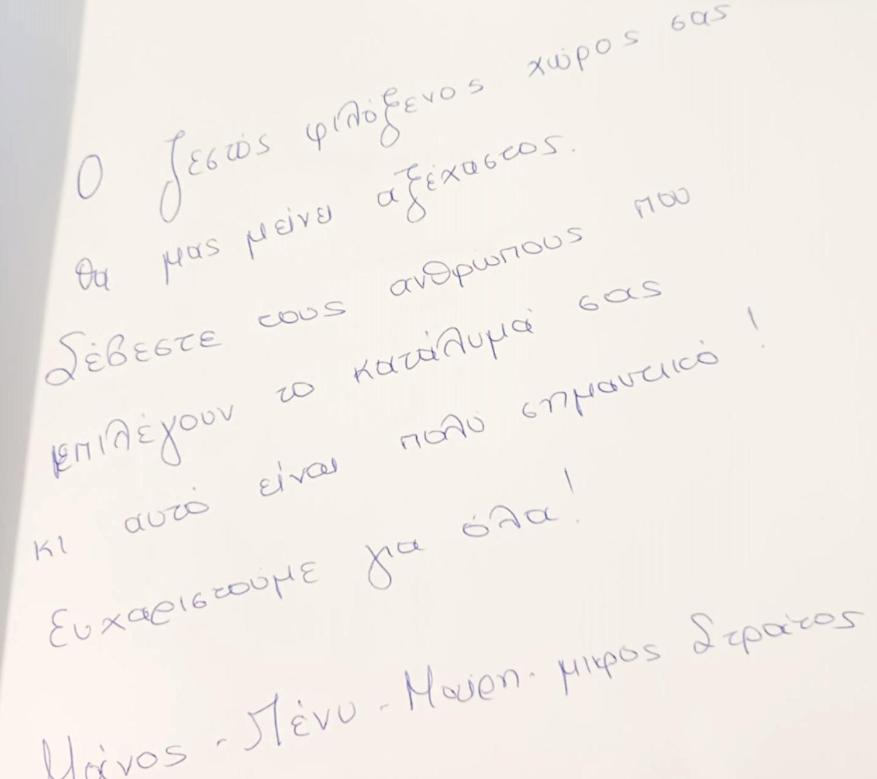 Ο ζεστός φιλόξενος χώρος σας
θα μας μείνει αξέχαστος.
Σέβεστε τους ανθρώπους που
επιλέγουν το κατάλυμά σας
κι αυτό είναι πολύ σημαντικό!
Ευχαριστούμε για όλα!
Μάνος - Πένυ - Μαίρη - μικρος Στράτος